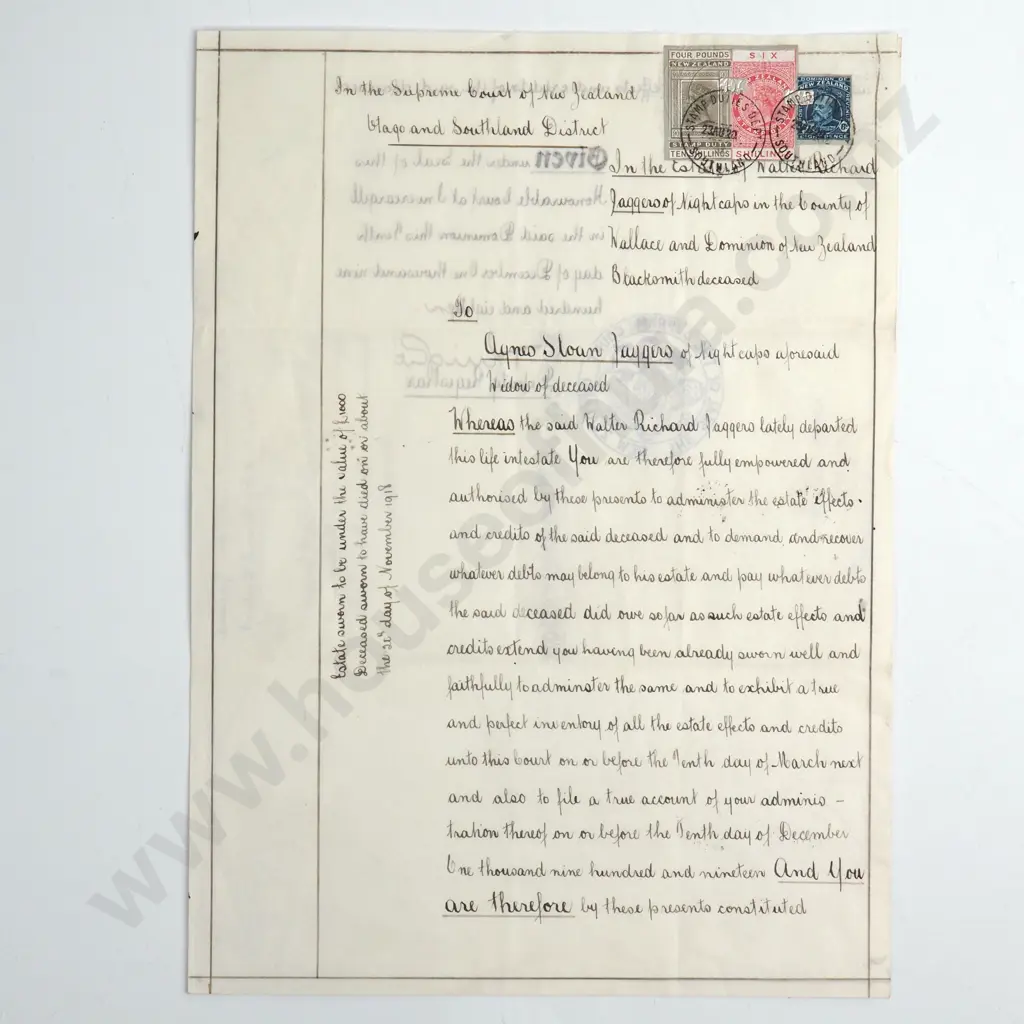 FOUR POUNDS
NEW ZEALAND
STAMP DUTY
TEN SHILLINGS
SIX
NEW ZEALAND
SHILLINGS
DOMINION OF
NEW ZEALAND
STAMP DUTIES DEP
23 AU 20
SOUTHLAND
STAMP D
SOUTHLAND
In the Supreme Court of New Zealand
Otago and Southland District
In the Estate of Walter Richard
Jaggers of Nightcaps in the County of
Wallace and Dominion of New Zealand
Blacksmith deceased
To
Agnes Sloan Jaggers of Nightcaps aforesaid
Widow of deceased
Whereas the said Walter Richard Jaggers lately departed
this life intestate You are therefore fully empowered and
authorised by these presents to administer the estate effects
and credits of the said deceased and to demand and recover
whatever debts may belong to his estate and pay whatever debts
the said deceased did owe so far as such estate effects and
credits extend you having been already sworn well and
faithfully to adminster the same and to exhibit a true
and perfect inventory of all the estate effects and credits
unto this Court on or before the Tenth day of March next
and also to file a true account of your adminis -
tration thereof on or before the Tenth day of December
One thousand nine hundred and nineteen And You
are therefore by these presents constituted
Estate sworn to be under the value of £1000
Deceased sworn to have died on or about
the day of November 1918
Given under the Seal of this
Honourable Court at Invercargill
in the said Dominion this Tenth
day of December One thousand nine
hundred and eighteen
Registrar
www.houseofnatua.co.nz